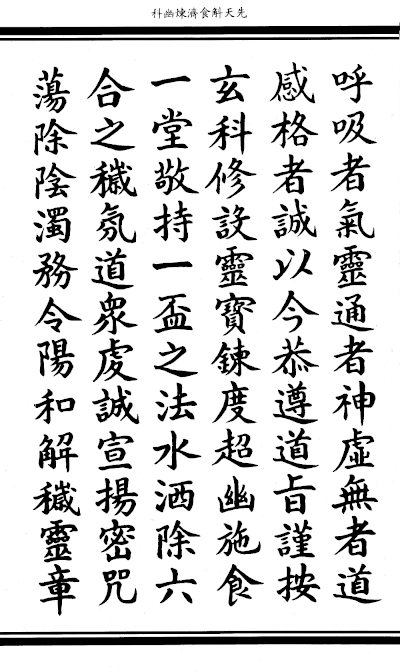 先天斛食濟煉幽科
呼吸者氣靈通者神虛無者道
感格者誠以今恭遵道旨謹按
玄科修設靈寶鍊度超幽施食
一堂敬持一盃之法水洒除六
合之穢氛道眾虔誠宣揚密咒
蕩除陰濁務令陽和解穢靈章